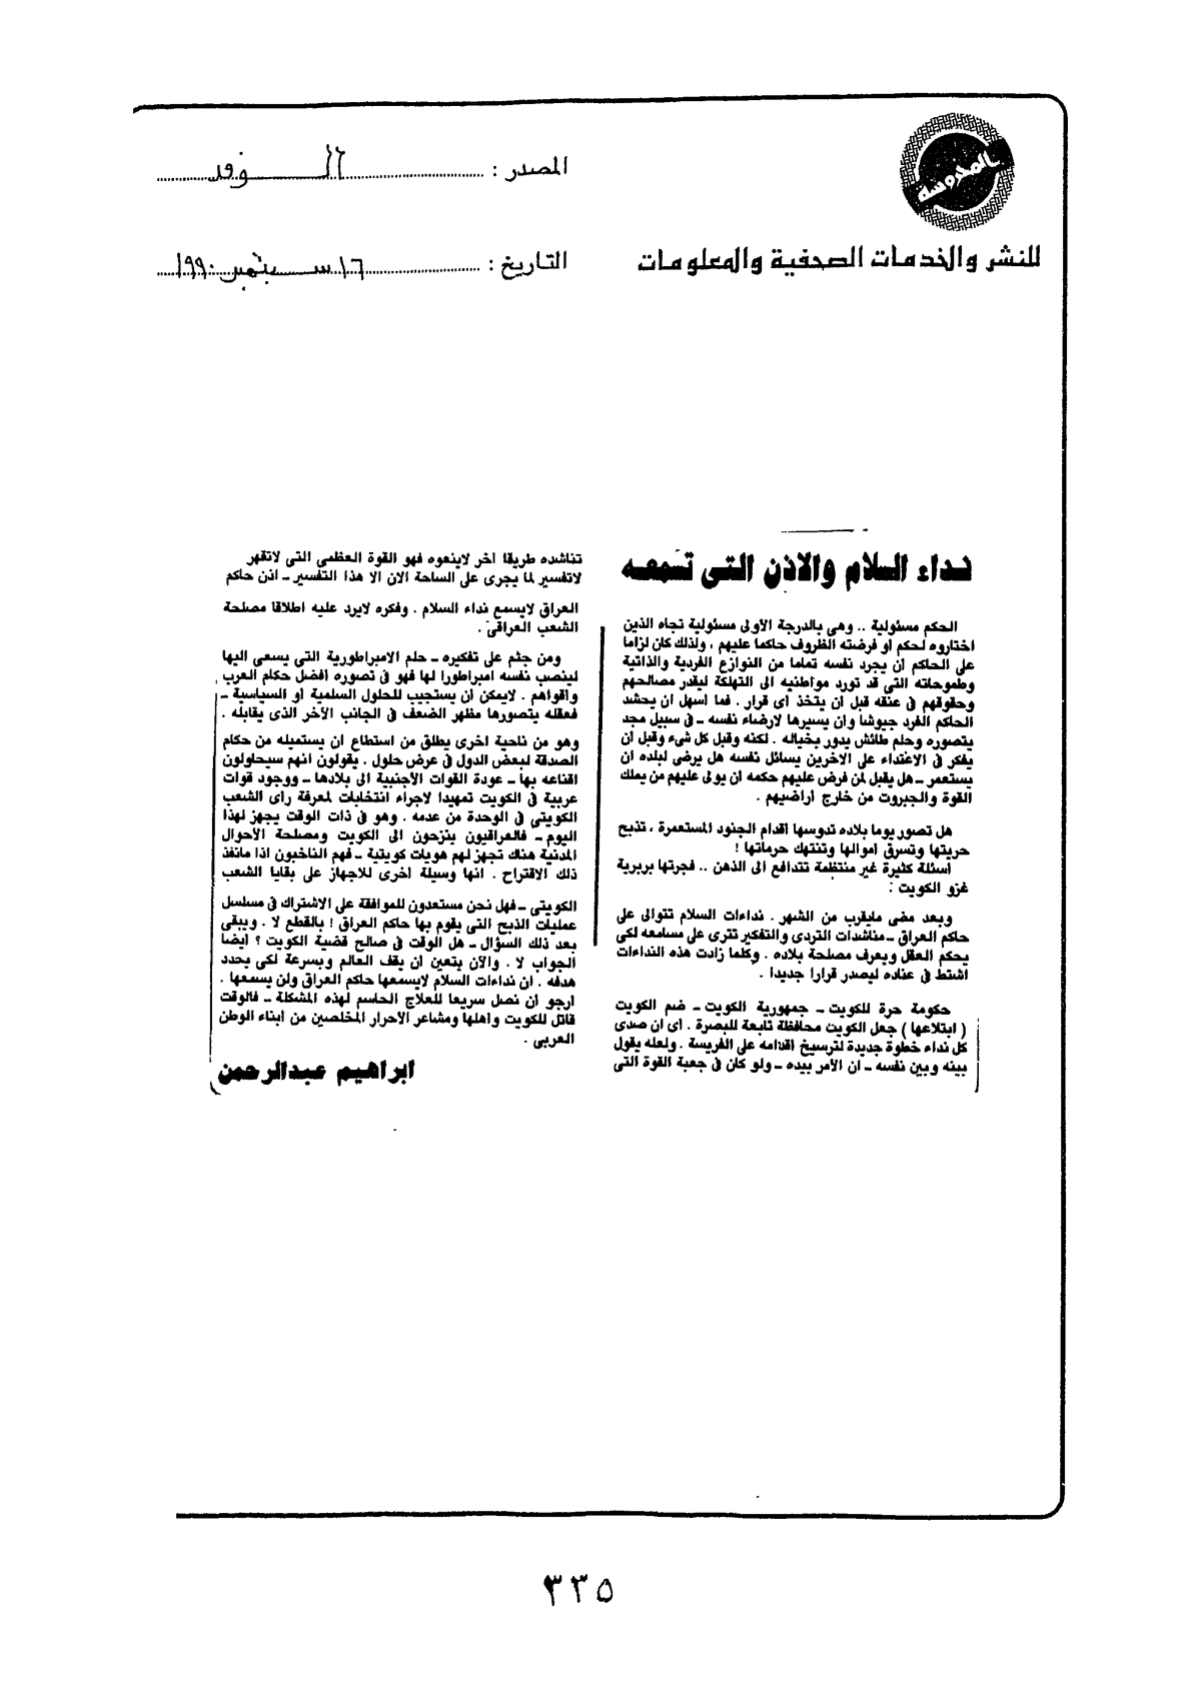 المحروسة
للنشر والخدمات الصحفية والمعلومات
المصدر : الوفد
التاريخ : ١٦ سبتمبر ١٩٩٠
نداء السلام والاذن التى تسمعه
الحكم مسئولية .. وهى بالدرجة الأولى مسئولية تجاه الذين
اختاروه لحكم او فرضته الظروف حاكما عليهم ، ولذلك كان لزاما
على الحاكم أن يجرد نفسه تماما من النوازع الفردية والذاتية
وطموحاته التى قد تورد مواطنيه الى التهلكة ليقدر مصالحهم
وحقوقهم فى عنقه قبل أن يتخذ اى قرار . فما اسهل ان يحشد
الحاكم الفرد جيوشا وان يسيرها لارضاء نفسه - فى سبيل مجد
يتصوره وحلم طائش يدور بخياله . لكنه وقبل كل شىء وقبل ان
يفكر فى الاعتداء على الاخرين يسائل نفسه هل يرضى لبلده ان
يستعمر - هل يقبل لمن فرض عليهم حكمه ان يولى عليهم من يملك
القوة والجبروت من خارج اراضيهم .
هل تصور يوما بلاده تدوسها أقدام الجنود المستعمرة ، تذبح
حريتها وتسرق اموالها وتنتهك حرماتها !
أسئلة كثيرة غير منتظمة تتدافع الى الذهن .. فجرتها بربرية
غزو الكويت :
وبعد مضى مايقرب من الشهر . نداءات السلام تتوالى على
حاكم العراق - مناشدات التردى والتفكير تترى على مسامعه لكى
يحكم العقل ويعرف مصلحة بلاده . وكلما زادت هذه النداءات
اشتط فى عناده ليصدر قرارا جديدا .
حكومة حرة للكويت - جمهورية الكويت - ضم الكويت
( ابتلاعها ) جعل الكويت محافظة تابعة للبصرة . اى ان صدى
كل نداء خطوة جديدة لترسيخ اقدامه على الفريسة . ولعله يقول
بينه وبين نفسه - ان الأمر بيده - ولو كان فى جعبة القوة التى
تناشده طريقا اخر لاينعوه فهو القوة العظمى التى لاتقهر
لاتفسير لما يجرى على الساحة الان الا هذا التفسير - اذن حاكم
العراق لايسمع نداء السلام . وفكره لايرد عليه اطلاقا مصلحة
الشعب العراقى .
ومن جثم على تفكيره - حلم الامبراطورية التى يسعى اليها
لينصب نفسه امبراطورا لها فهو فى تصوره افضل حكام العرب
واقواهم . لايمكن أن يستجيب للحلول السلمية او السياسية -
فعقله يتصورها مظهر الضعف فى الجانب الآخر الذى يقابله .
وهو من ناحية اخرى يطلق من استطاع ان يستميله من حكام
الصدقة لبعض الدول فى عرض حلول . يقولون انهم سيحاولون
اقناعه بها - عودة القوات الأجنبية الى بلادها - ووجود قوات
عربية فى الكويت تمهيدا لاجراء انتخابات لمعرفة راى الشعب
الكويتى فى الوحدة من عدمه . وهو فى ذات الوقت يجهز لهذا
اليوم - فالعراقيون ينزحون الى الكويت ومصلحة الأحوال
المدنية هناك تجهز لهم هويات كويتية - فهم الناخبون اذا مانفذ
ذلك الاقتراح . انها وسيلة اخرى للاجهاز على بقايا الشعب
الكويتى - فهل نحن مستعدون للموافقة على الاشتراك فى مسلسل
عمليات الذبح التى يقوم بها حاكم العراق ! بالقطع لا . ويبقى
بعد ذلك السؤال - هل الوقت فى صالح قضية الكويت ؟ أيضا
الجواب لا . والآن يتعين ان يقف العالم وبسرعة لكى يحدد
هدفه . ان نداءات السلام لايسمعها حاكم العراق ولن يسمعها .
ارجو ان نصل سريعا للعلاج الحاسم لهذه المشكلة - فالوقت
قاتل للكويت واهلها ومشاعر الأحرار المخلصين من ابناء الوطن
العربى .
ابراهيم عبدالرحمن
٣٣٥